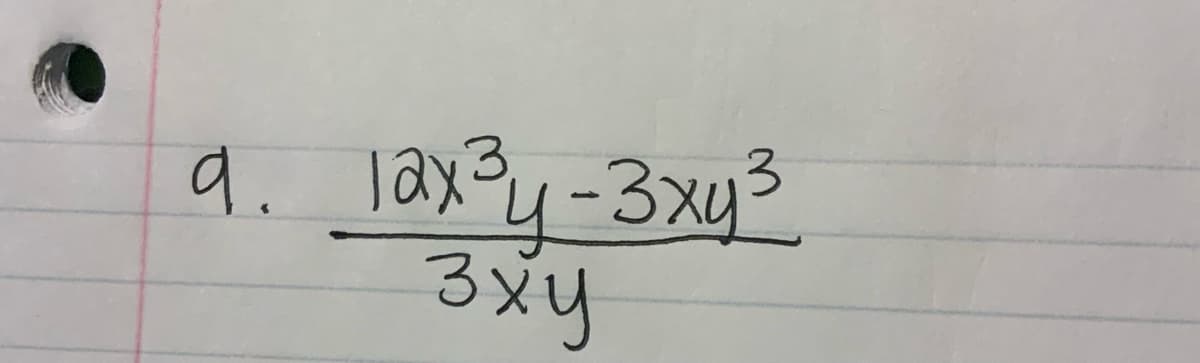 9. 12x³y-3xy³
3xy